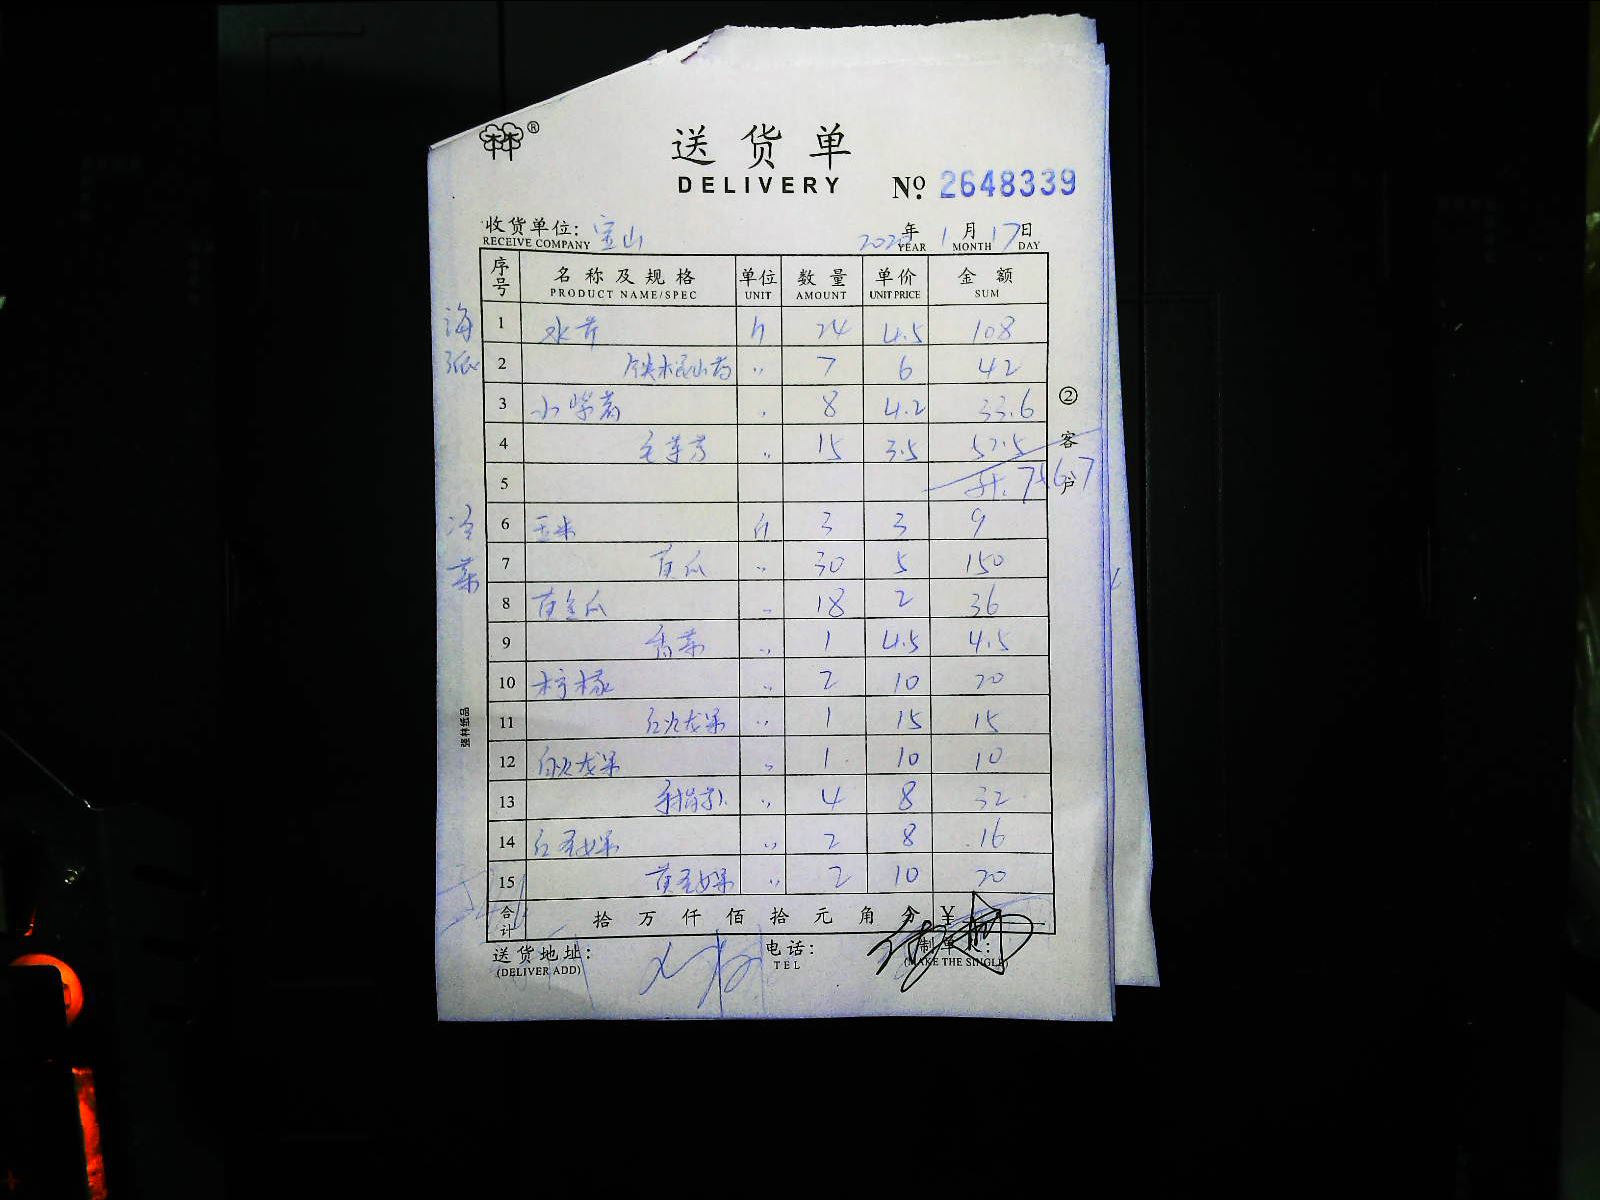 ®
送货单
DELIVERY
No. 2648339
收货单位: 宝山
RECEIVE COMPANY
年 1 月 17 日
YEAR MONTH DAY
序号 名称及规格 单位 数量 单价 金额
PRODUCT NAME/SPEC UNIT AMOUNT UNIT PRICE SUM
1 水芹 斤 24 4.5 108
2 铁棍山药 〃 7 6 42
3 小紫薯 〃 8 4.2 33.6
4 毛芋艿 〃 15 3.5 52.5
5
6 玉米 斤 3 3 9
7 黄瓜 〃 30 5 150
8 黄金瓜 〃 18 2 36
9 香菜 〃 1 4.5 4.5
10 柠檬 〃 2 10 20
11 红火龙果 〃 1 15 15
12 白火龙果 〃 1 10 10
13 〃 4 8 32
14 红圣女果 〃 2 8 16
15 黄圣女果 〃 2 10 20
合计 拾 万 仟 佰 拾 元 角 分 ¥
送货地址: 电话: 制单人:
(DELIVER ADD) TEL (MAKE THE SINGLE)
②客户
冷菜
强林纸品